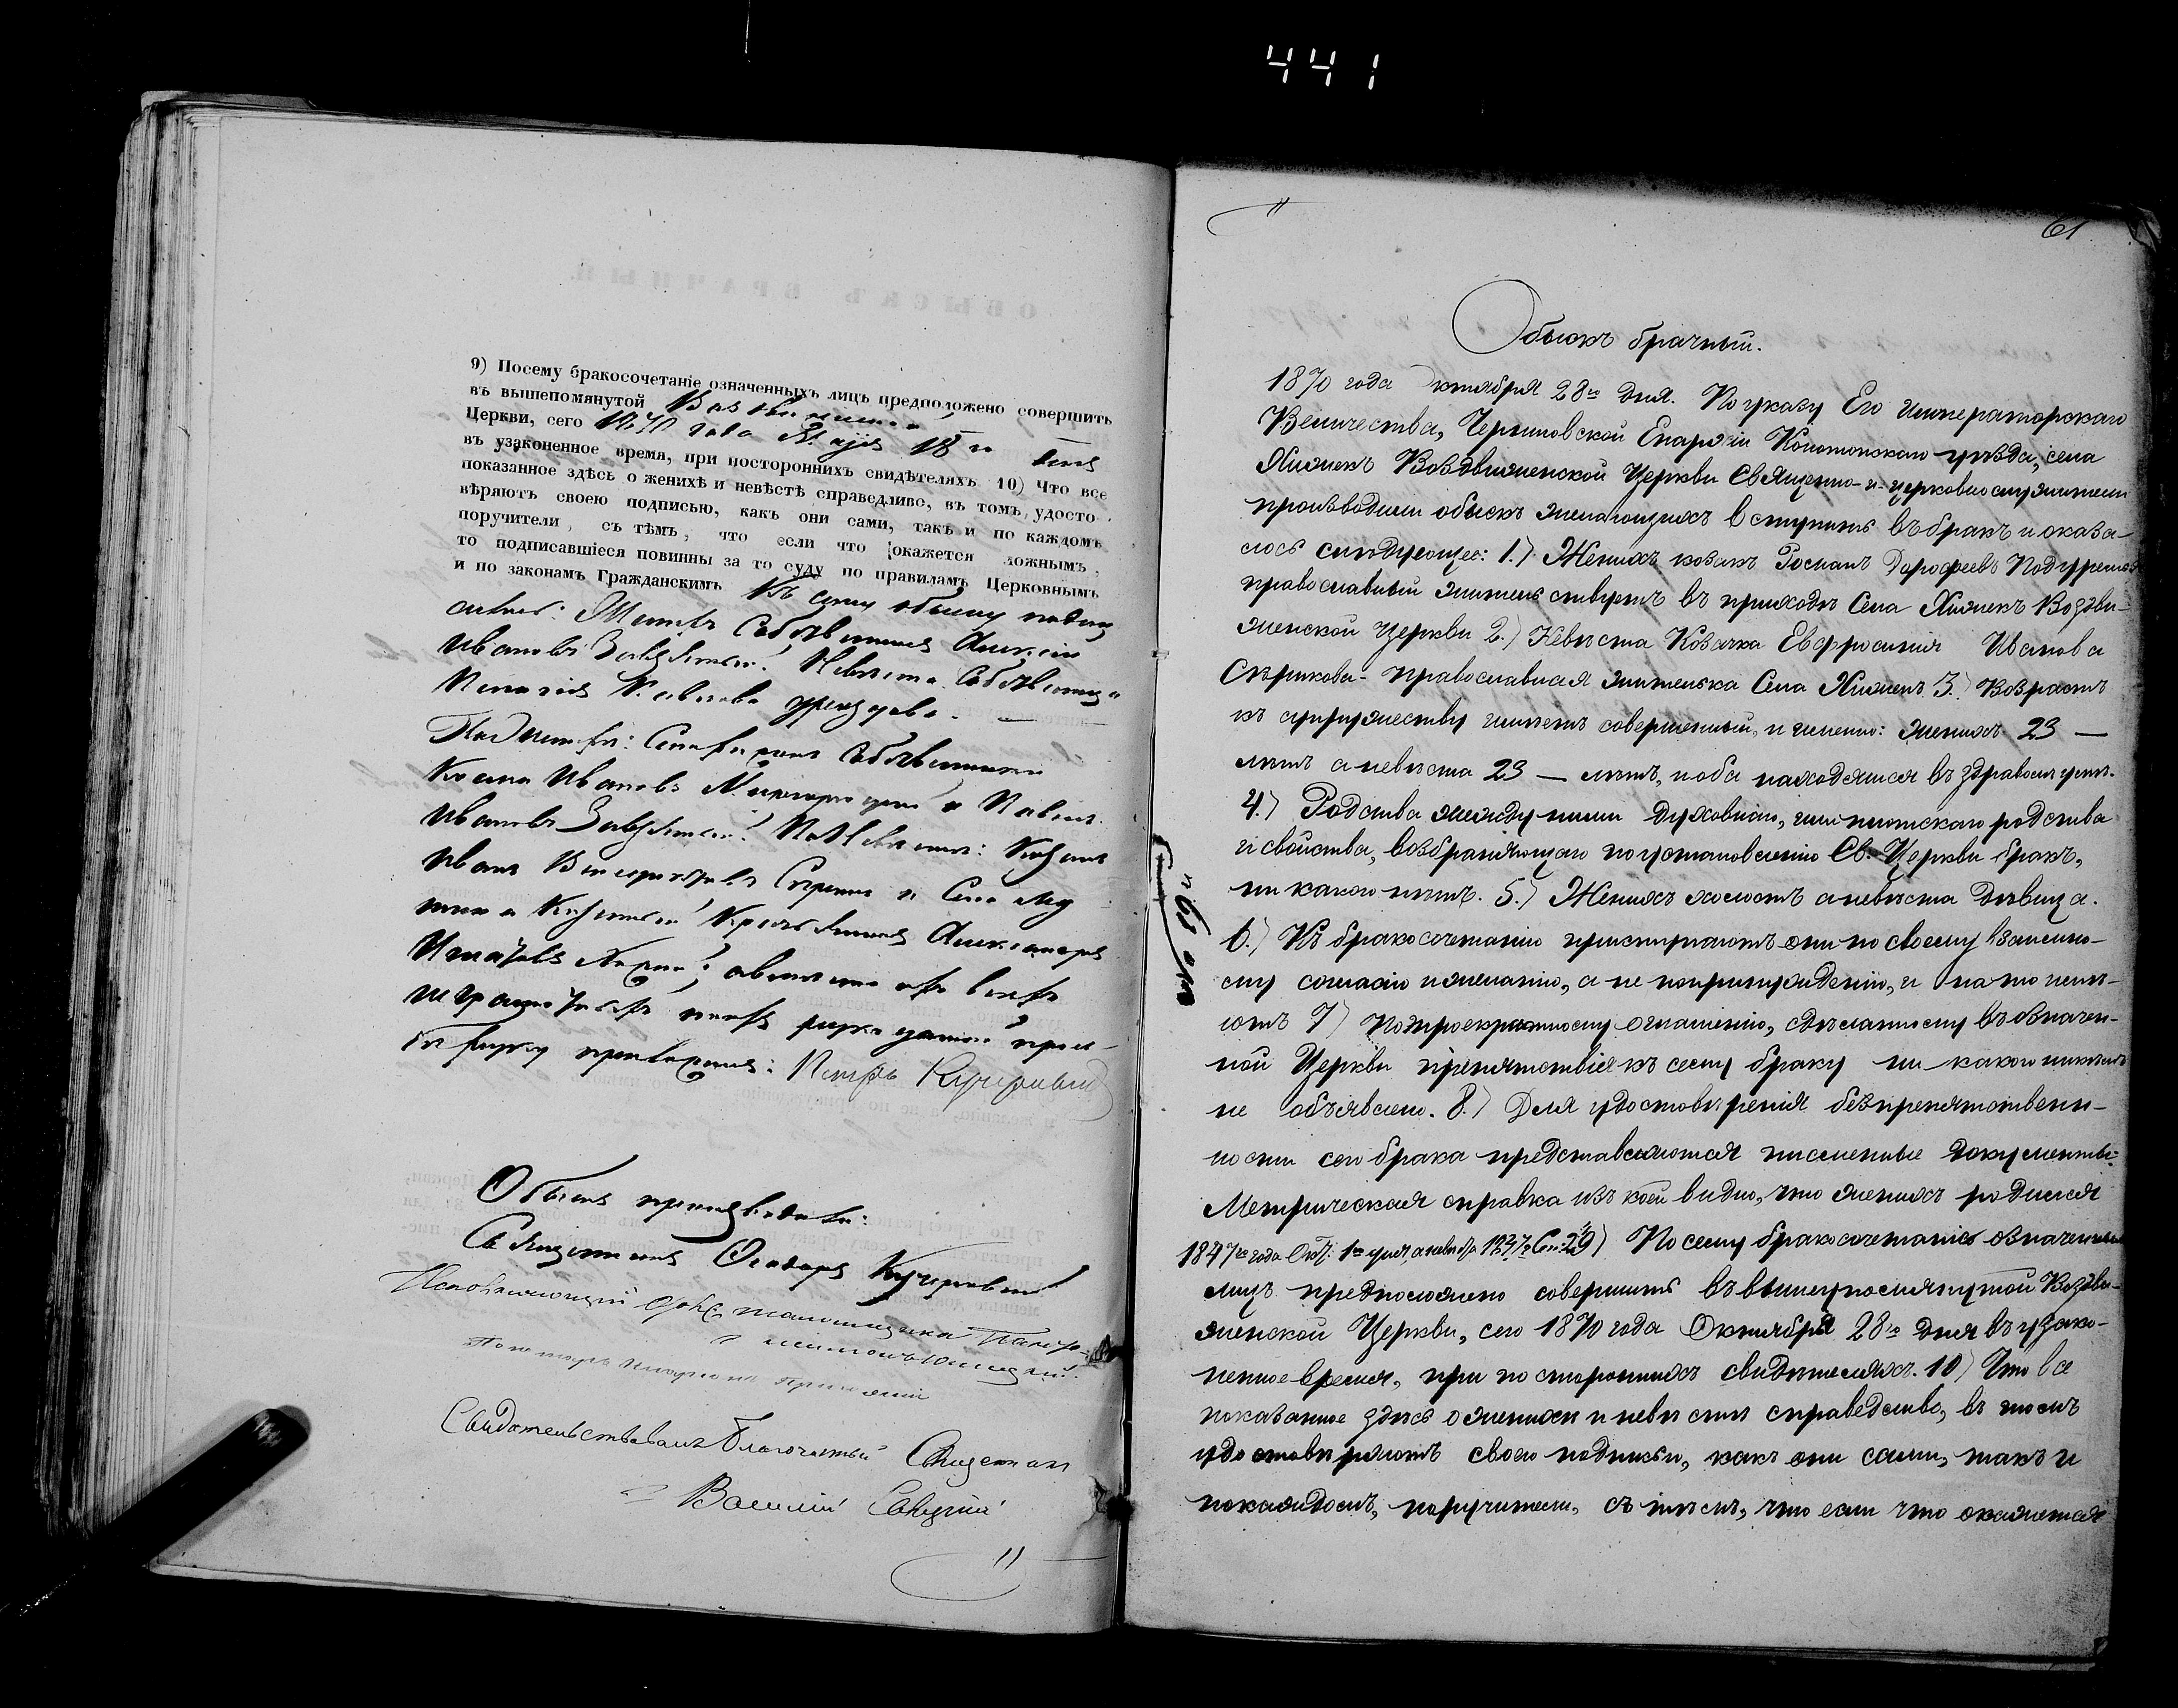 441
9) Посему бракосочетаніе означенныхъ лицъ предположено совершить
въ вышепомянутой
Церкви, сего 1870 года Маія 18го дня
въ узаконенное время, при постороннихъ свидѣтеляхъ 10) Что все
показанное здѣсь о женихѣ и невѣстѣ справедливо, въ томъ удосто
вѣряютъ своею подписью, какъ они сами, такъ и по каждомъ
поручители, съ тѣмъ, что если что окажется ложнымъ,
то подписавшіеся повинны за то суду по правиламъ Церковнымъ
и по законамъ Гражданскимъ Къ сему обыску
Женихъ Собственникъ Алексѣй
Ивановъ Невѣста Собственница
Пелагія
По Женихѣ: Собственники
Косма Ивановъ и Павелъ
Ивановъ По Невѣстѣ: Козакъ
Иванъ и
Александръ
а вмѣсто ихъ всѣхъ
неграмотныхъ
руку приложилъ: Петръ Кучеровскій
Обыскъ производили:
Священникъ Феодоръ Кучеровскій
Исполняющій
Пономарь
Свидѣтельствовалъ Благочинный Священникъ
Василій Савицкій
61
Обыскъ брачный.
1870 года Октября 28го дня. По указу Его Императорскаго
Величества, Черниговской Епархіи Конотопскаго уѣзда, села
Хижекъ Воздвиженской Церкви Священно-и-церковнослужители
производили обыскъ желающихъ вступить въ бракъ и оказа-
лось слѣдующее: 1.) Женихъ козакъ Романъ Дорофеевъ
православный жительствуетъ въ приходѣ Села Хижекъ Воздви-
женской Церкви 2.) Невѣста Козачка Евфросинія Иванова
Сѣрикова- православная жителька Села Хижекъ 3.) Возрастъ
къ супружеству имѣютъ совершенный, и именно: женихъ 23 —
лѣтъ а невѣста 23 — лѣтъ, и оба находятся въ здравомъ умѣ.
4.) Родства между ними духовнаго, или плотскаго родства
и свойства, возбраняющаго по установленію Св. Церкви бракъ,
ни какого нѣтъ. 5.) Женихъ холостъ а невѣста Дѣвица.
6.) Къ бракосочетанію приступаютъ они по своему взаимно-
му согласію и желанію, а не по принужденію, и на то имѣ-
ютъ 7) По троекратному оглашенію, сдѣланному въ означен-
ной Церкви препятствія къ сему браку ни какого никѣмъ
не объявлено. 8.) Для удостовѣренія безпрепятственн-
ности сего брака представляются письменные документы:
Метрическая справка изъ коей видно, что женихъ родился
1847го года Окт: 1го дня, а невѣста 1847 Сен: 29) По сему бракосочетаніе означенныхъ
лицъ предположено совершить въ вышеупомянутой Воздви-
женской Церкви, сего 1870 года Октября 28го дня въ узако-
ненное время, при постороннихъ свидѣтеляхъ. 10) Что все
показанное здѣсь о женихѣ и невѣстѣ справедливо, въ томъ
удостовѣряютъ своею подписью, какъ они сами, такъ и
по каждомъ, поручители, съ тѣмъ, что если что окажется